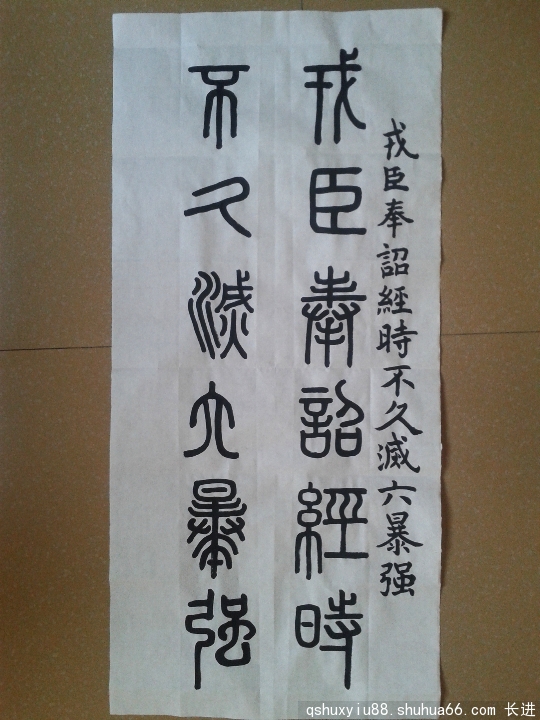 戎臣奉詔經時不久滅六暴强
戎臣奉詔經時
不久滅六暴强
qshuxyiu88.shuhua66.com 长进